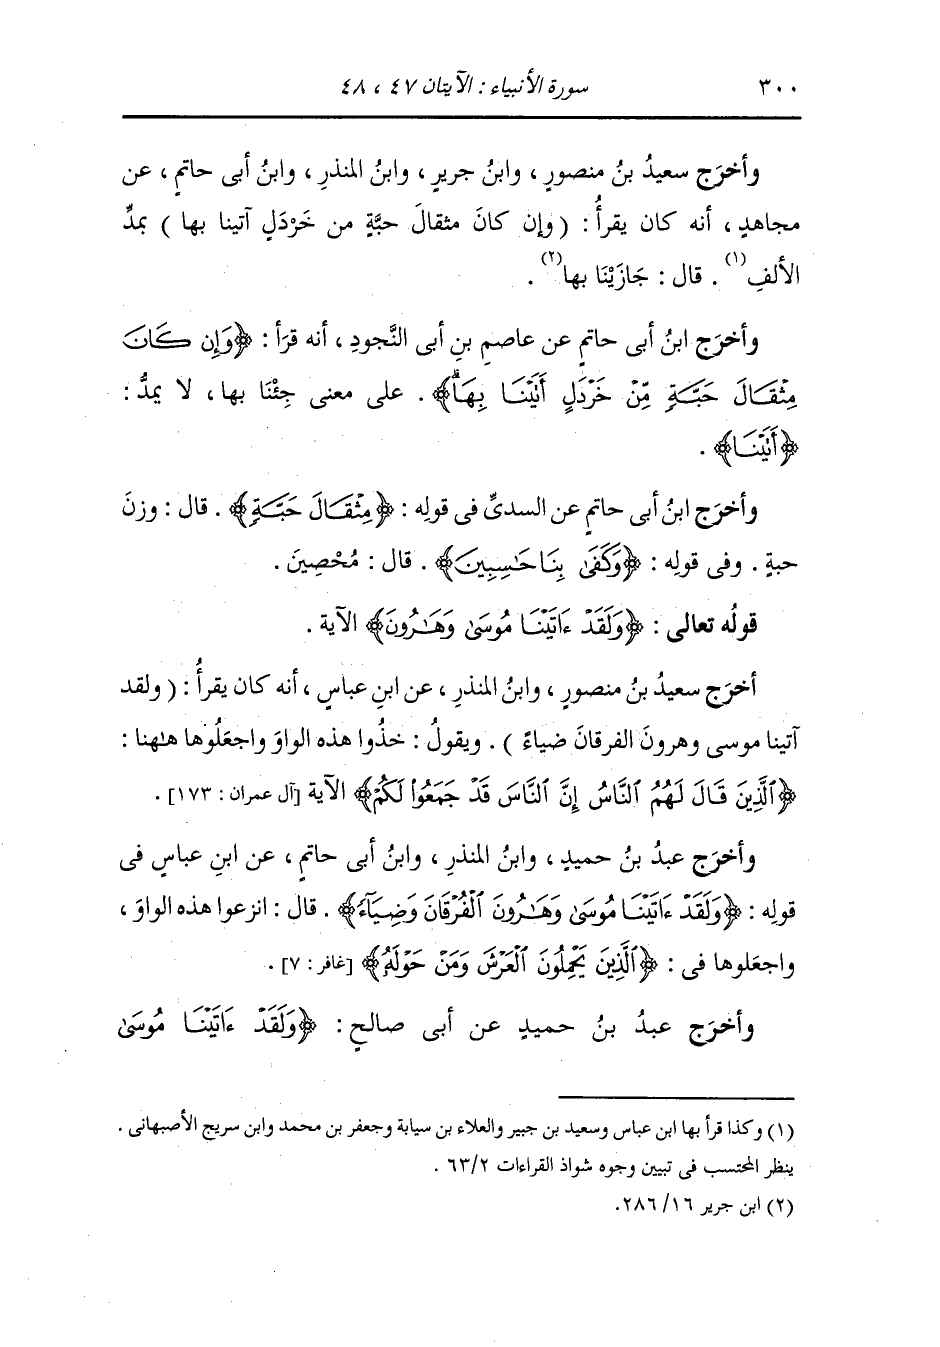 ٣٠٠ سورة الأنبياء : الآيتان ٤٧ ، ٤٨
وأخرَج سعيدُ بنُ منصورٍ ، وابنُ جريرٍ ، وابنُ المنذرِ ، وابنُ أبى حاتمٍ ، عن
مجاهدٍ ، أنه كان يقرأُ : ( وإن كانَ مثقالَ حبَّةٍ من خَرْدَلٍ آتينا بها ) بمدِّ
الألفِ(١) . قال : جَازَيْنَا بها(٢) .
وأخرَج ابنُ أبى حاتمٍ عن عاصمِ بنِ أبى النَّجودِ ، أنه قرَأ : ﴿وَإِن كَانَ
مِثْقَالَ حَبَّةٍ مِّنْ خَرْدَلٍ أَتَيْنَا بِهَاۗ﴾ . على معنى جِئْنَا بها ، لا يمدُّ :
﴿أَتَيْنَا﴾ .
وأخرَج ابنُ أبى حاتمٍ عن السدىِّ فى قولِه : ﴿مِثْقَالَ حَبَّةٍ﴾ . قال : وزنَ
حبةٍ . وفى قولِه : ﴿وَكَفَىٰ بِنَا حَٰسِبِينَ﴾ . قال : مُحْصِينَ .
قولُه تعالى : ﴿وَلَقَدْ ءَاتَيْنَا مُوسَىٰ وَهَٰرُونَ﴾ الآية .
أخرَج سعيدُ بنُ منصورٍ ، وابنُ المنذرِ ، عن ابنِ عباسٍ ، أنه كان يقرأُ : ( ولقد
آتينا موسى وهرونَ الفرقانَ ضياءً ) . ويقولُ : خذُوا هذه الواوَ واجعَلُوها هٰهنا :
﴿ٱلَّذِينَ قَالَ لَهُمُ ٱلنَّاسُ إِنَّ ٱلنَّاسَ قَدْ جَمَعُوا۟ لَكُمْ﴾ الآية [آل عمران : ١٧٣] .
وأخرَج عبدُ بنُ حميدٍ ، وابنُ المنذرِ ، وابنُ أبى حاتمٍ ، عن ابنِ عباسٍ فى
قولِه : ﴿وَلَقَدْ ءَاتَيْنَا مُوسَىٰ وَهَٰرُونَ ٱلْفُرْقَانَ وَضِيَآءً﴾ . قال : انزعوا هذه الواوَ ،
واجعَلوها فى : ﴿ٱلَّذِينَ يَحْمِلُونَ ٱلْعَرْشَ وَمَنْ حَوْلَهُۥ﴾ [غافر : ٧] .
وأخرَج عبدُ بنُ حميدٍ عن أبى صالحٍ : ﴿وَلَقَدْ ءَاتَيْنَا مُوسَىٰ
(١) وكذا قرأ بها ابن عباس وسعيد بن جبير والعلاء بن سيابة وجعفر بن محمد وابن سريج الأصبهانى .
ينظر المحتسب فى تبيين وجوه شواذ القراءات ٦٣/٢ .
(٢) ابن جرير ١٦/ ٢٨٦.